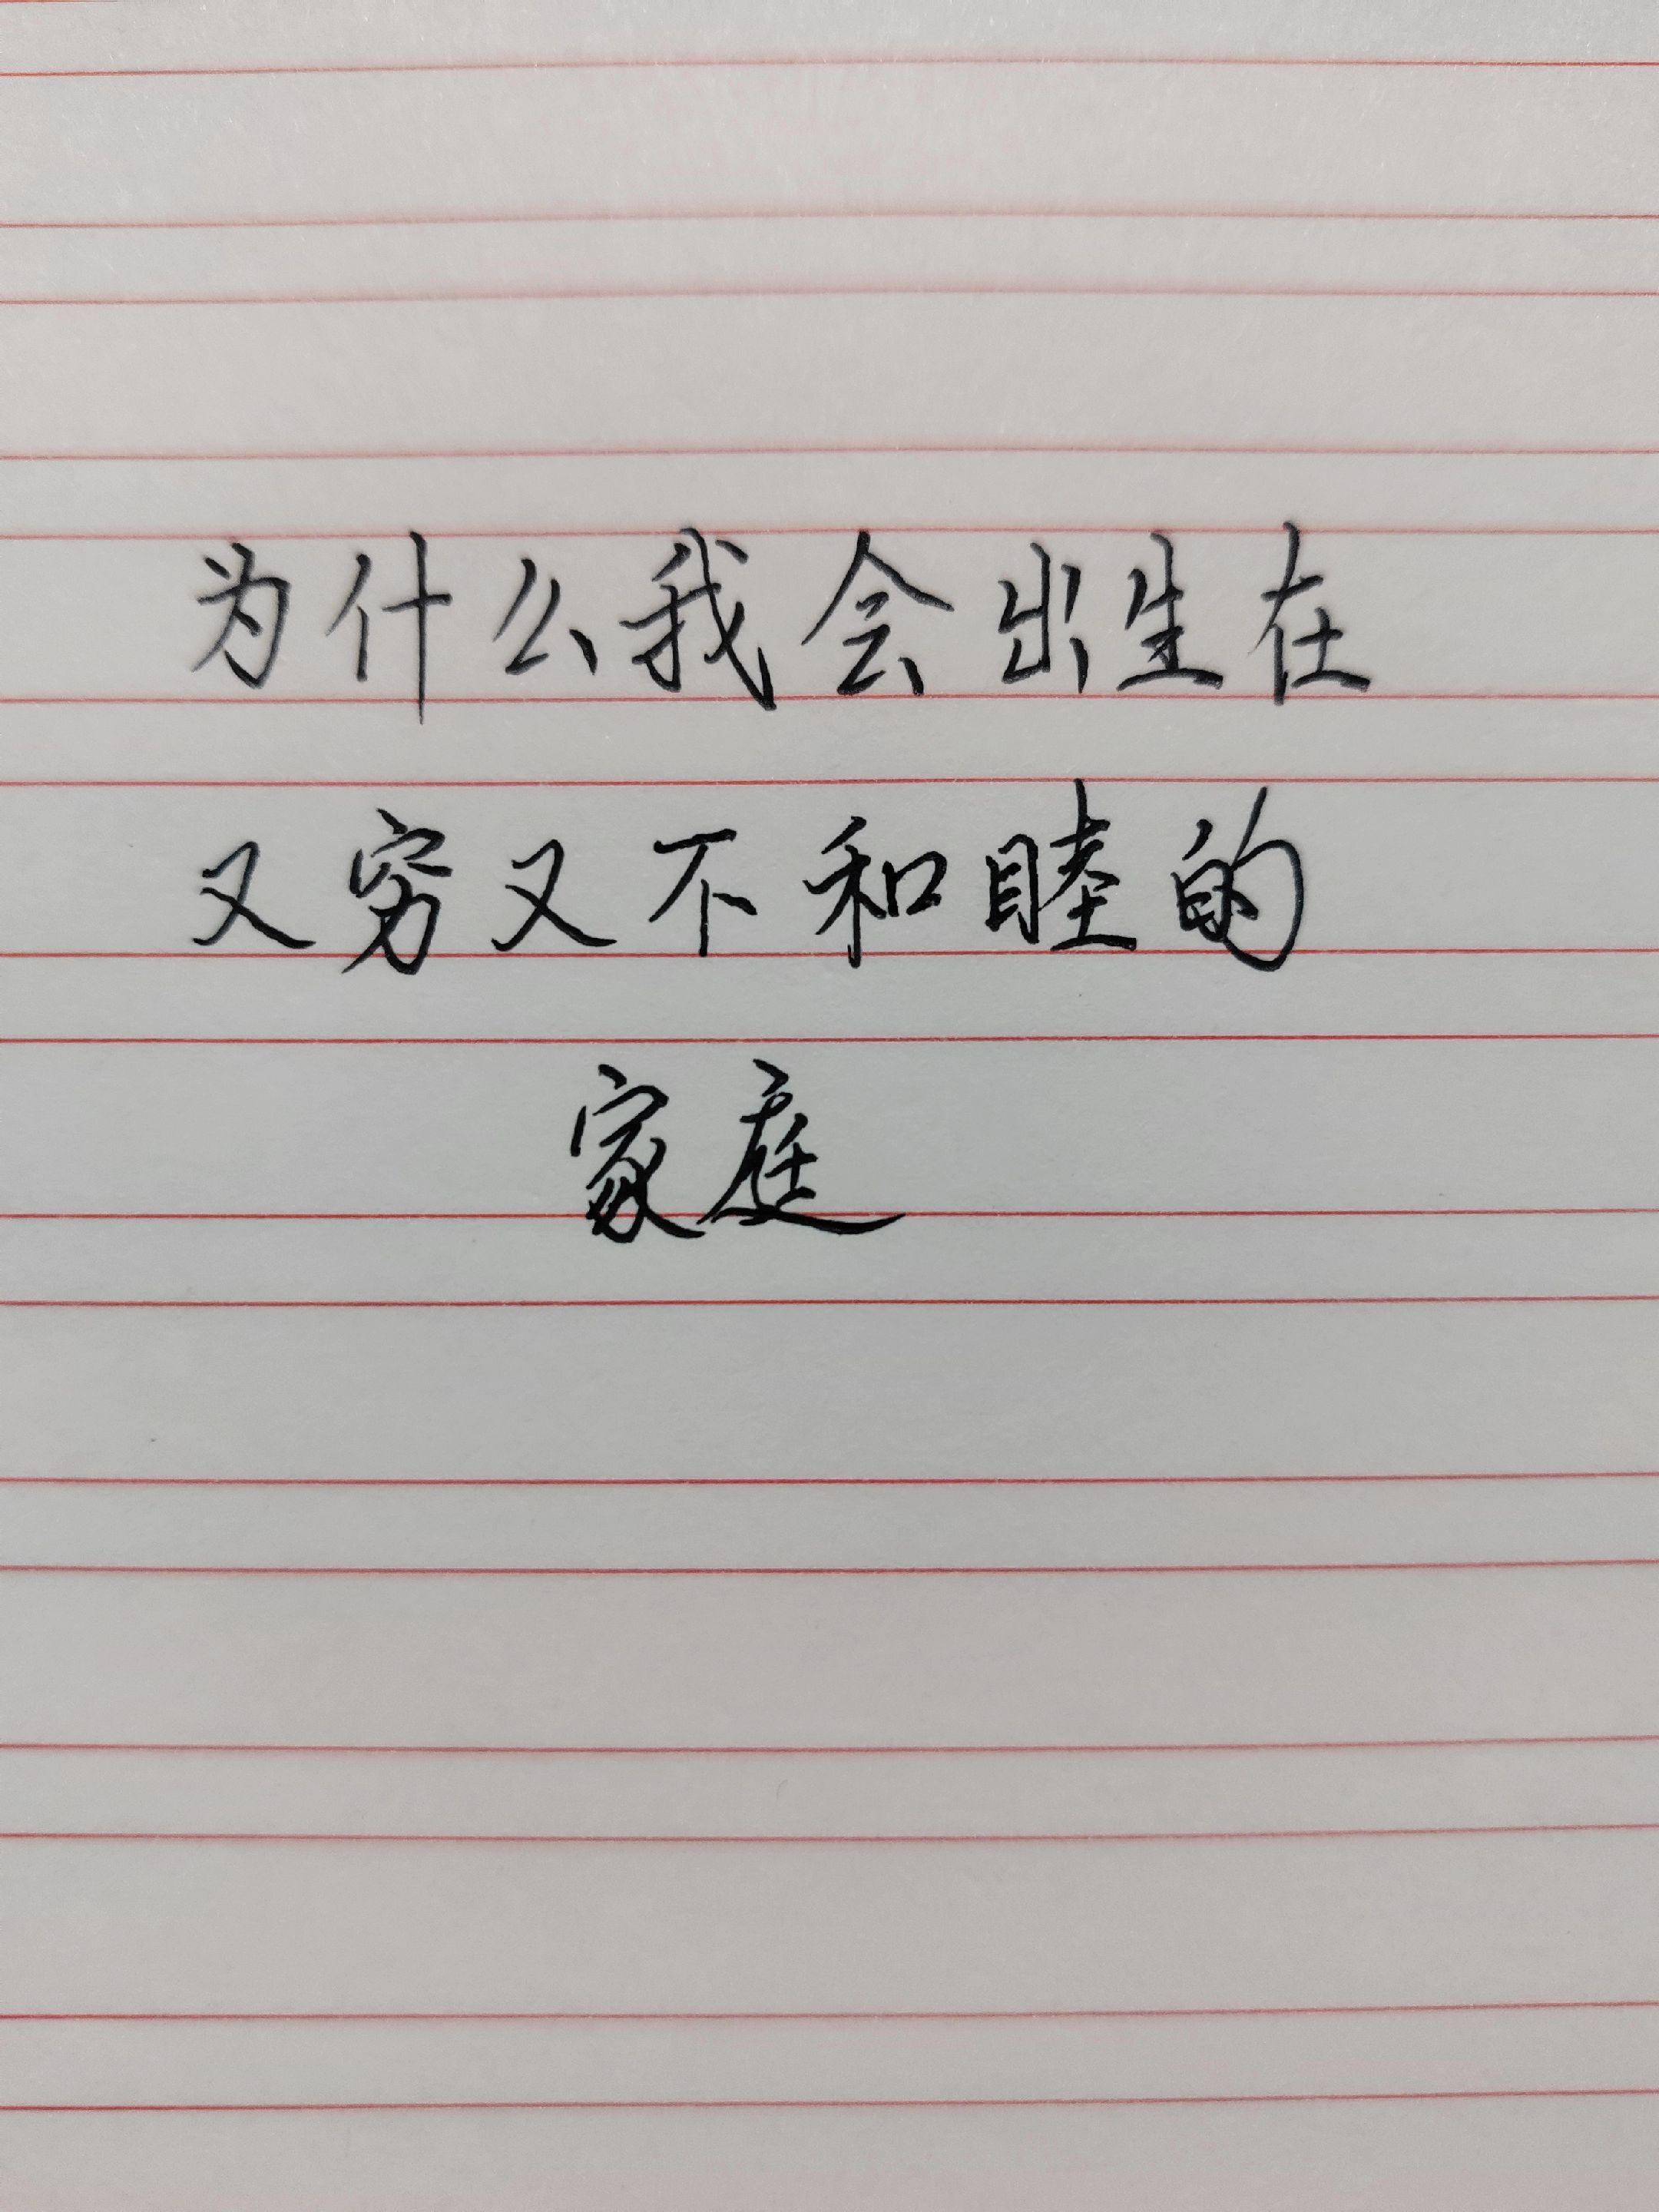 为什么我会出生在
又穷又不和睦的
家庭